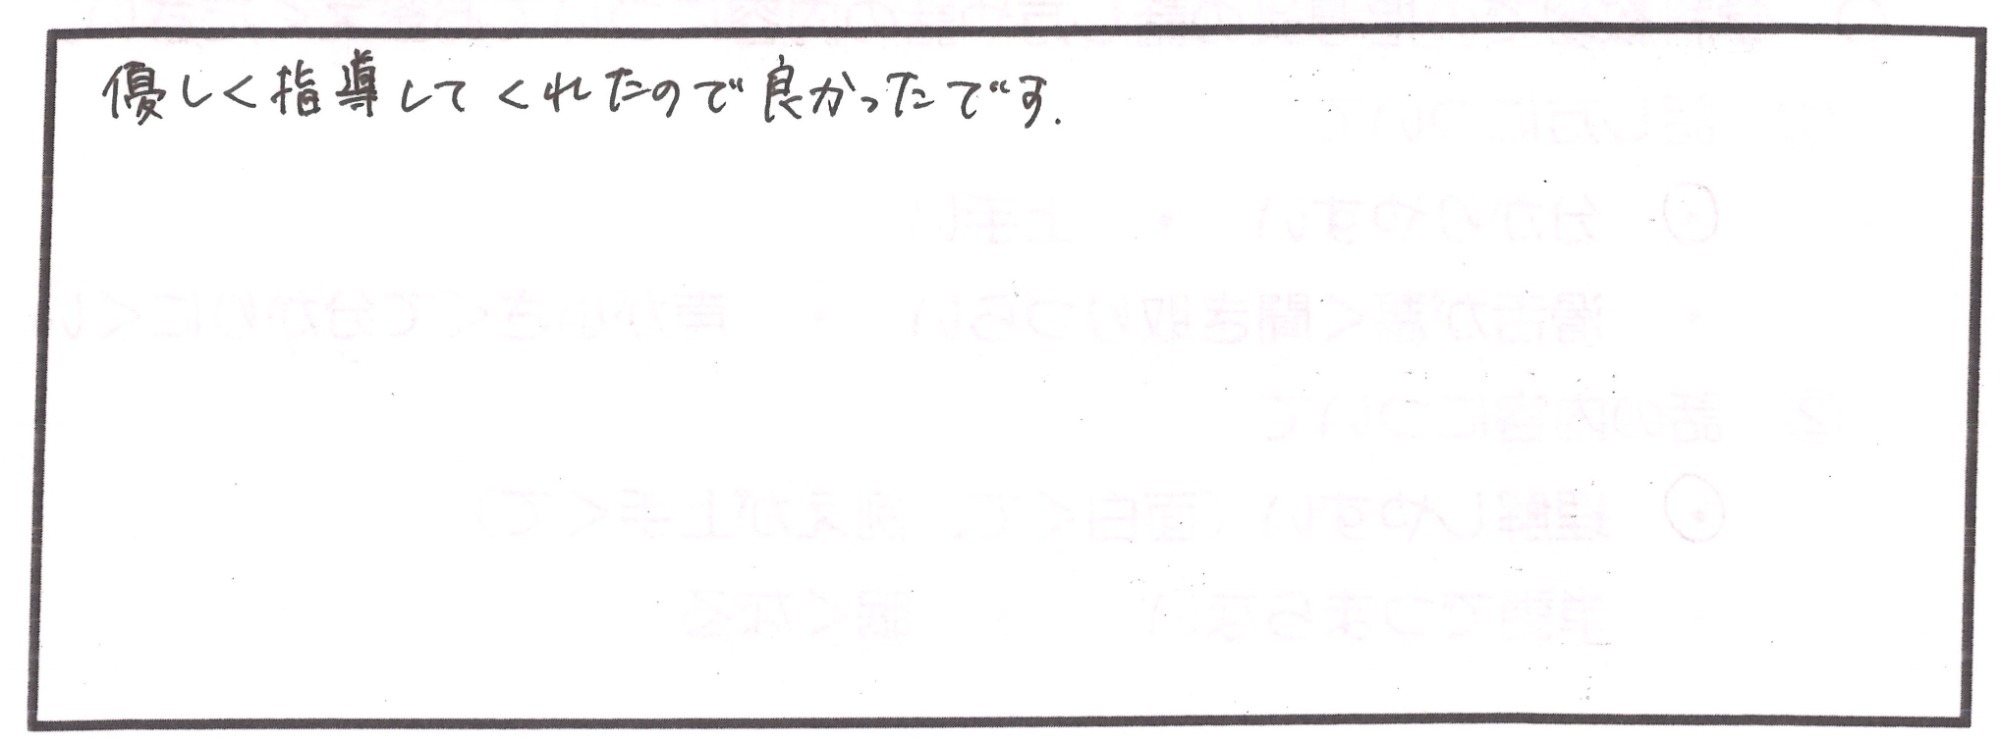 優しく指導してくれたので良かったです.